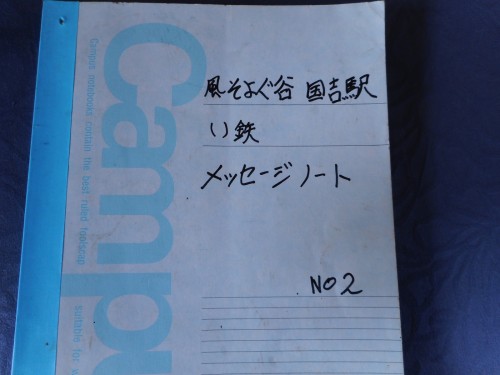 風そよぐ谷 国吉駅
い鉄
メッセージノート
NO2
Campu
Campus notebooks contain the best ruled foolscap
suitable for w